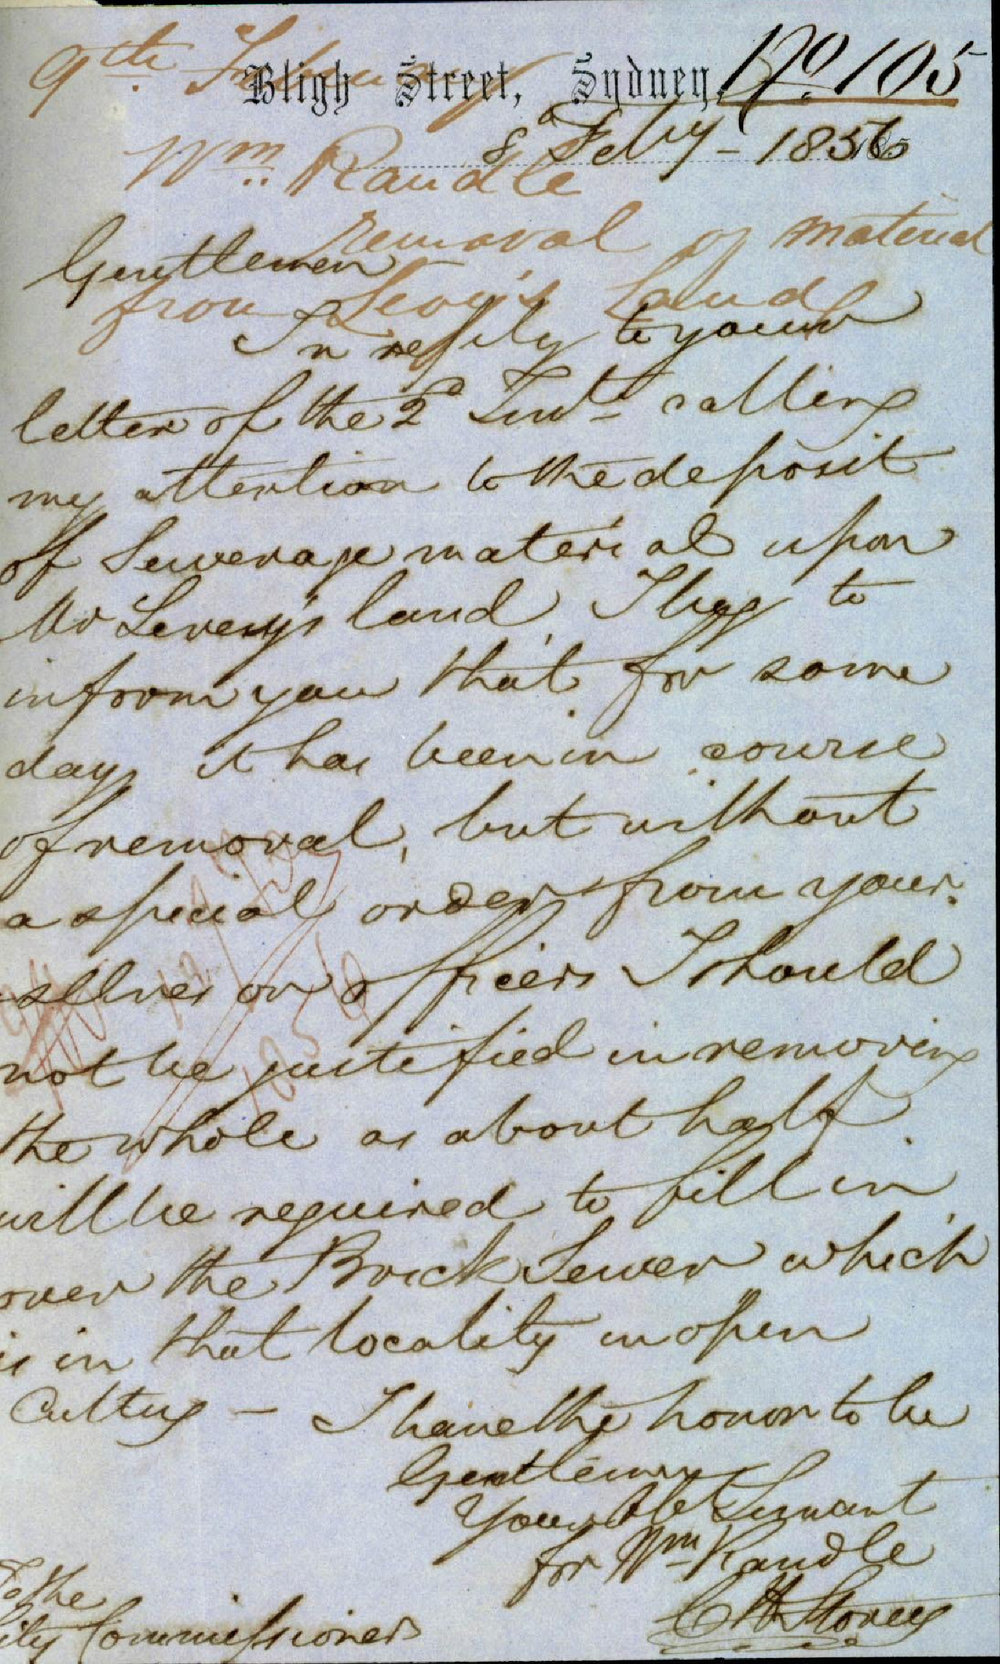 No. 105
9th February
Bligh Street, Sydney,
8 Feby - 1856
Wm. Randle
removal of material
from Levy's Land
Gentlemen
In reply to your
letter of the 2d Inst. calling
my attention to the deposit
of Sewerage material upon
Mr Levey's land, I beg to
inform you that for some
days it has been in course
of removal, but without
a special order from your-
selves or officers I should
not be justified in removing
the whole as about half
will be required to fill in
over the Brick Sewer which
is in that locality in open
Cutting - I have the honor to be
Gentlemen
Your Obt Servant
for Wm Randle
To the
City Commissioners